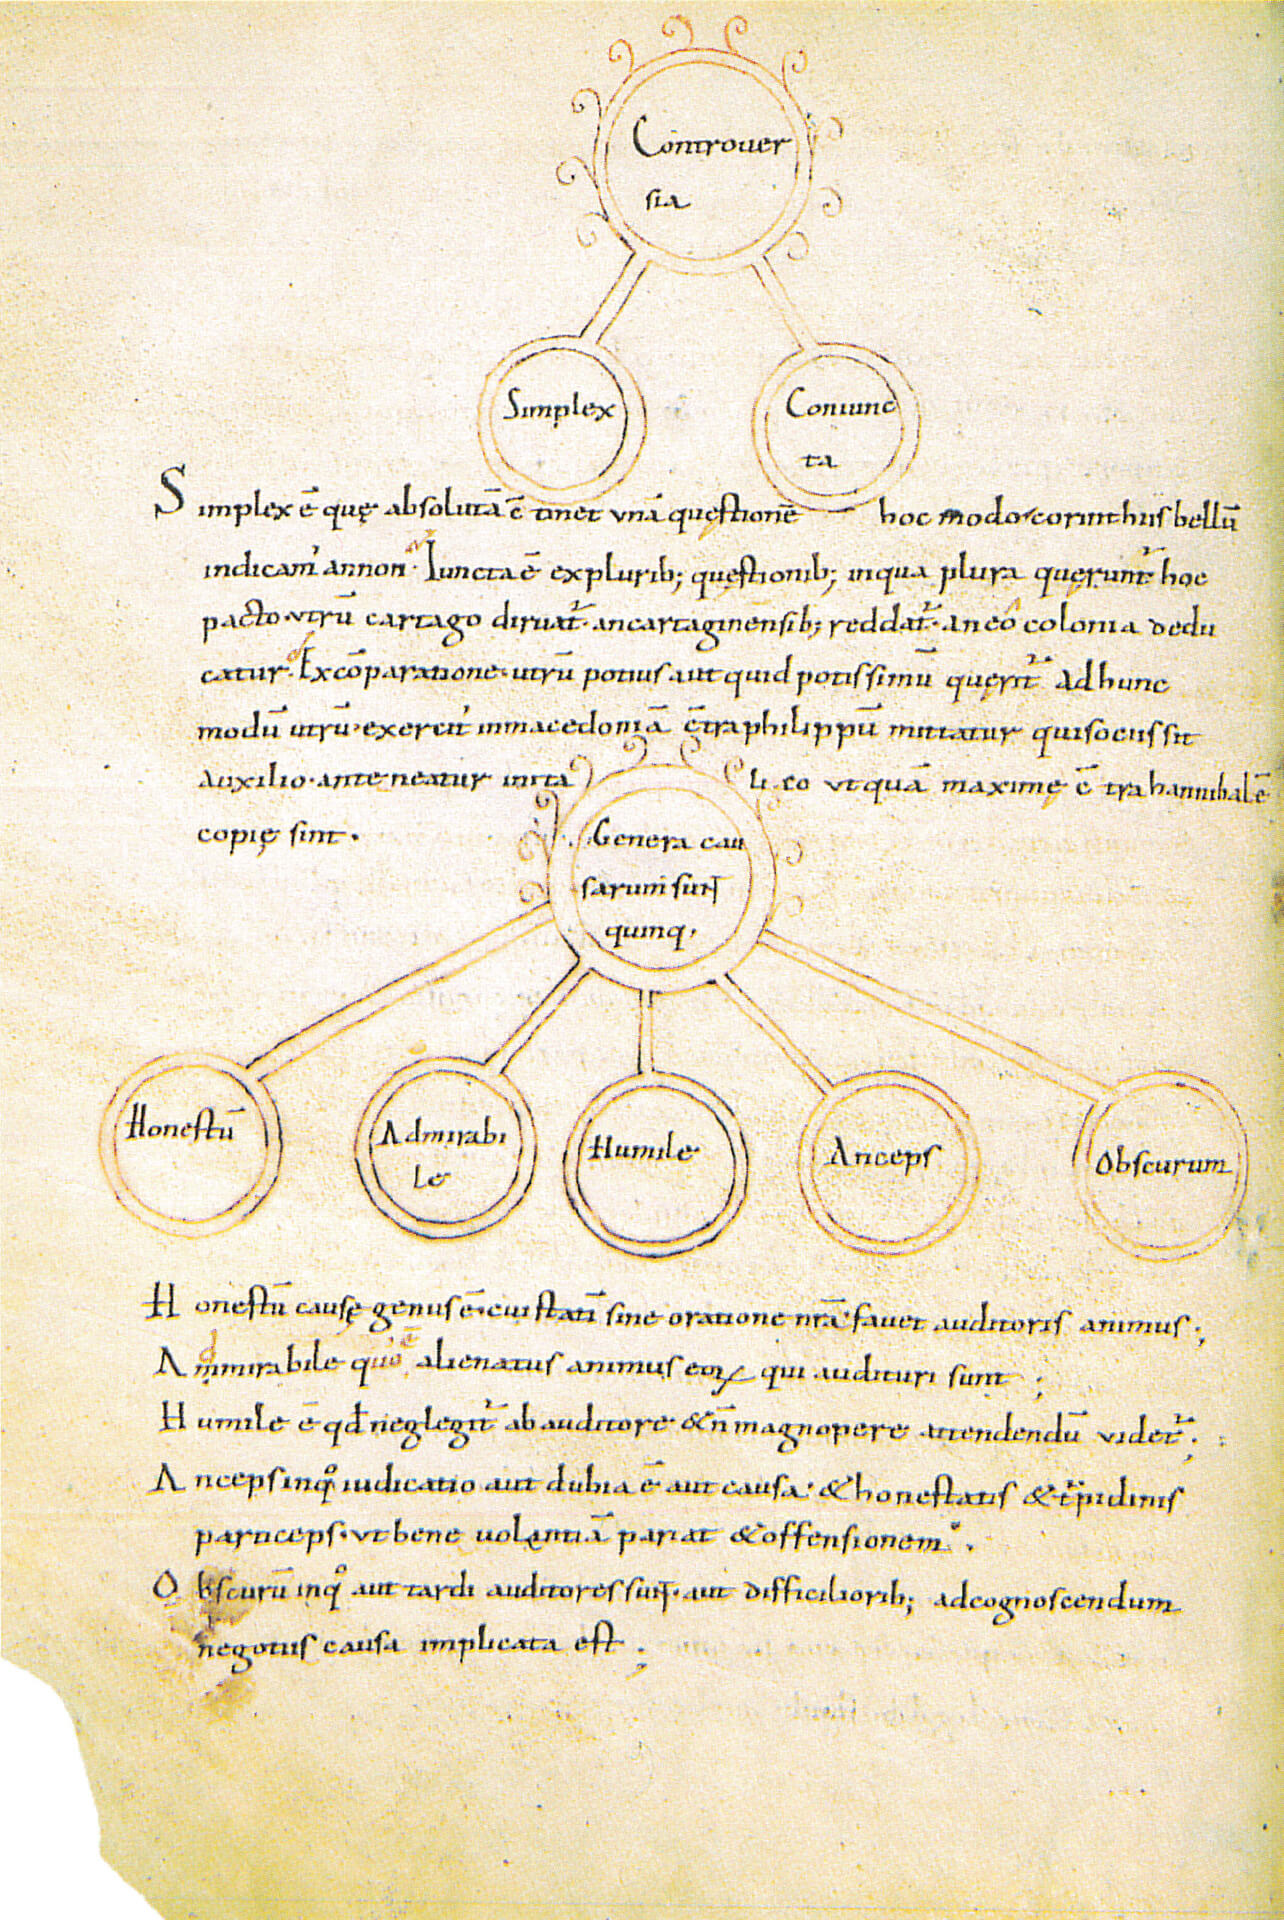 Controuer
sia
Simplex
Coniunc
ta
Simplex ē quę absolutā ē tinet vnā questionē hoc modo corinthiis bellū
indicam᾽ annon · Iuncta ē ex plurib; questionib; in qua plura querunt᾽ hoc
pacto · vtrū cartago diruat᾽ · an cartaginensib; reddat᾽ · an eo colonia dedu
catur · Ex cōparatione · utrū potius aut quid potissimū querit᾽ Ad hunc
modū utrū · exercit᾽ in macedoniā c̄tra philippū mittatur qui sociis sit
auxilio · an teneatur in ita li eo vt quā maxime c̄ tra hannibalē
copię sint ·
Genera cau
sarum sunt
quinq,
Honestū
Admirabi
le
Humile
Anceps
Obscurum
Honestū causę genus ē · cui statī sine oratione nr̄a fauet auditoris animus ;
Ammirabile quo ē alienatus animus eoꝝ qui audituri sunt ;
Humile ē qđ neglegit᾽ ab auditore & n̄ magnopere attendendū videt᾽ ;
Anceps in qͦ iudicatio aut dubia ē aut causa · & honestatis & t᾽pidinis
particeps · vt beneuolentiā pariat & offensionem ·
Obscurū in qͦ aut tardi auditores sunt · aut difficiliorib; ad cognoscendum
negotiis causa implicata est ;